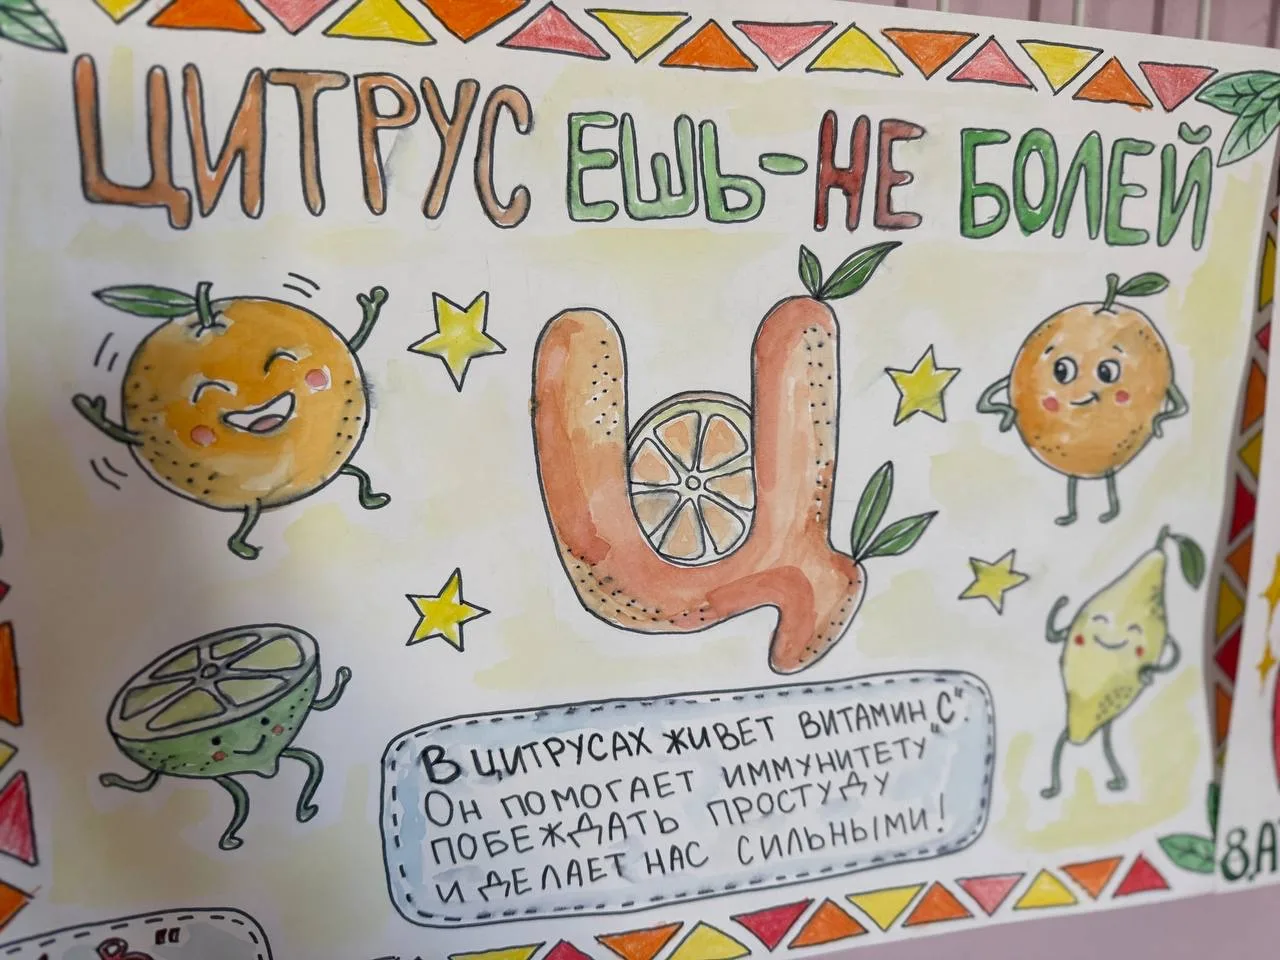 ЦИТРУС ЕШЬ-НЕ БОЛЕЙ
Ц
В ЦИТРУСАХ ЖИВЕТ ВИТАМИН „С".
ОН ПОМОГАЕТ ИММУНИТЕТУ
ПОБЕЖДАТЬ ПРОСТУДУ
И ДЕЛАЕТ НАС СИЛЬНЫМИ!
8„А